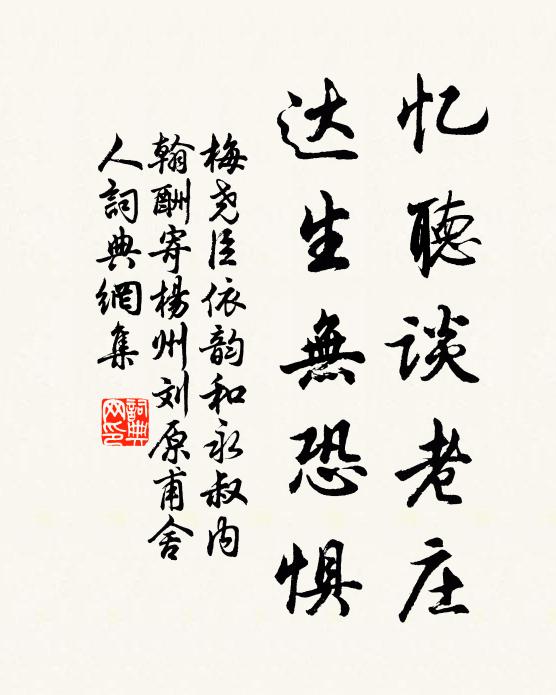 忆聽谈老庄
达生無恐惧
梅尧臣依韵和永叔内
翰酬寄楊州刘原甫舍
人詞典網集
詞典網印